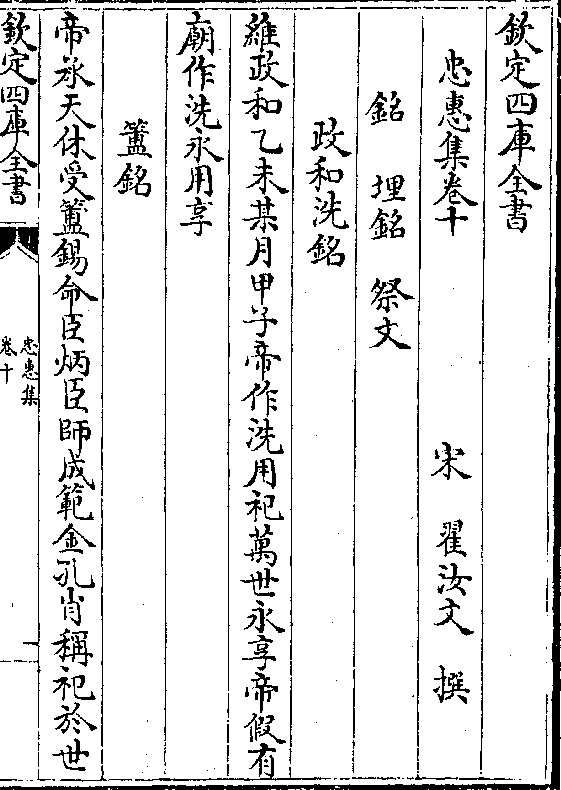 欽定四庫全書
忠惠集卷十
宋 翟汝文 撰
銘 埋銘 祭文
政和洗銘
維政和乙未某月甲子帝作洗用祀萬世永享帝假有
廟作洗永用享
簠銘
帝承天休受簠錫命臣炳臣師成範金孔肖稱祀於世
欽定四庫全書
忠惠集
卷十
一